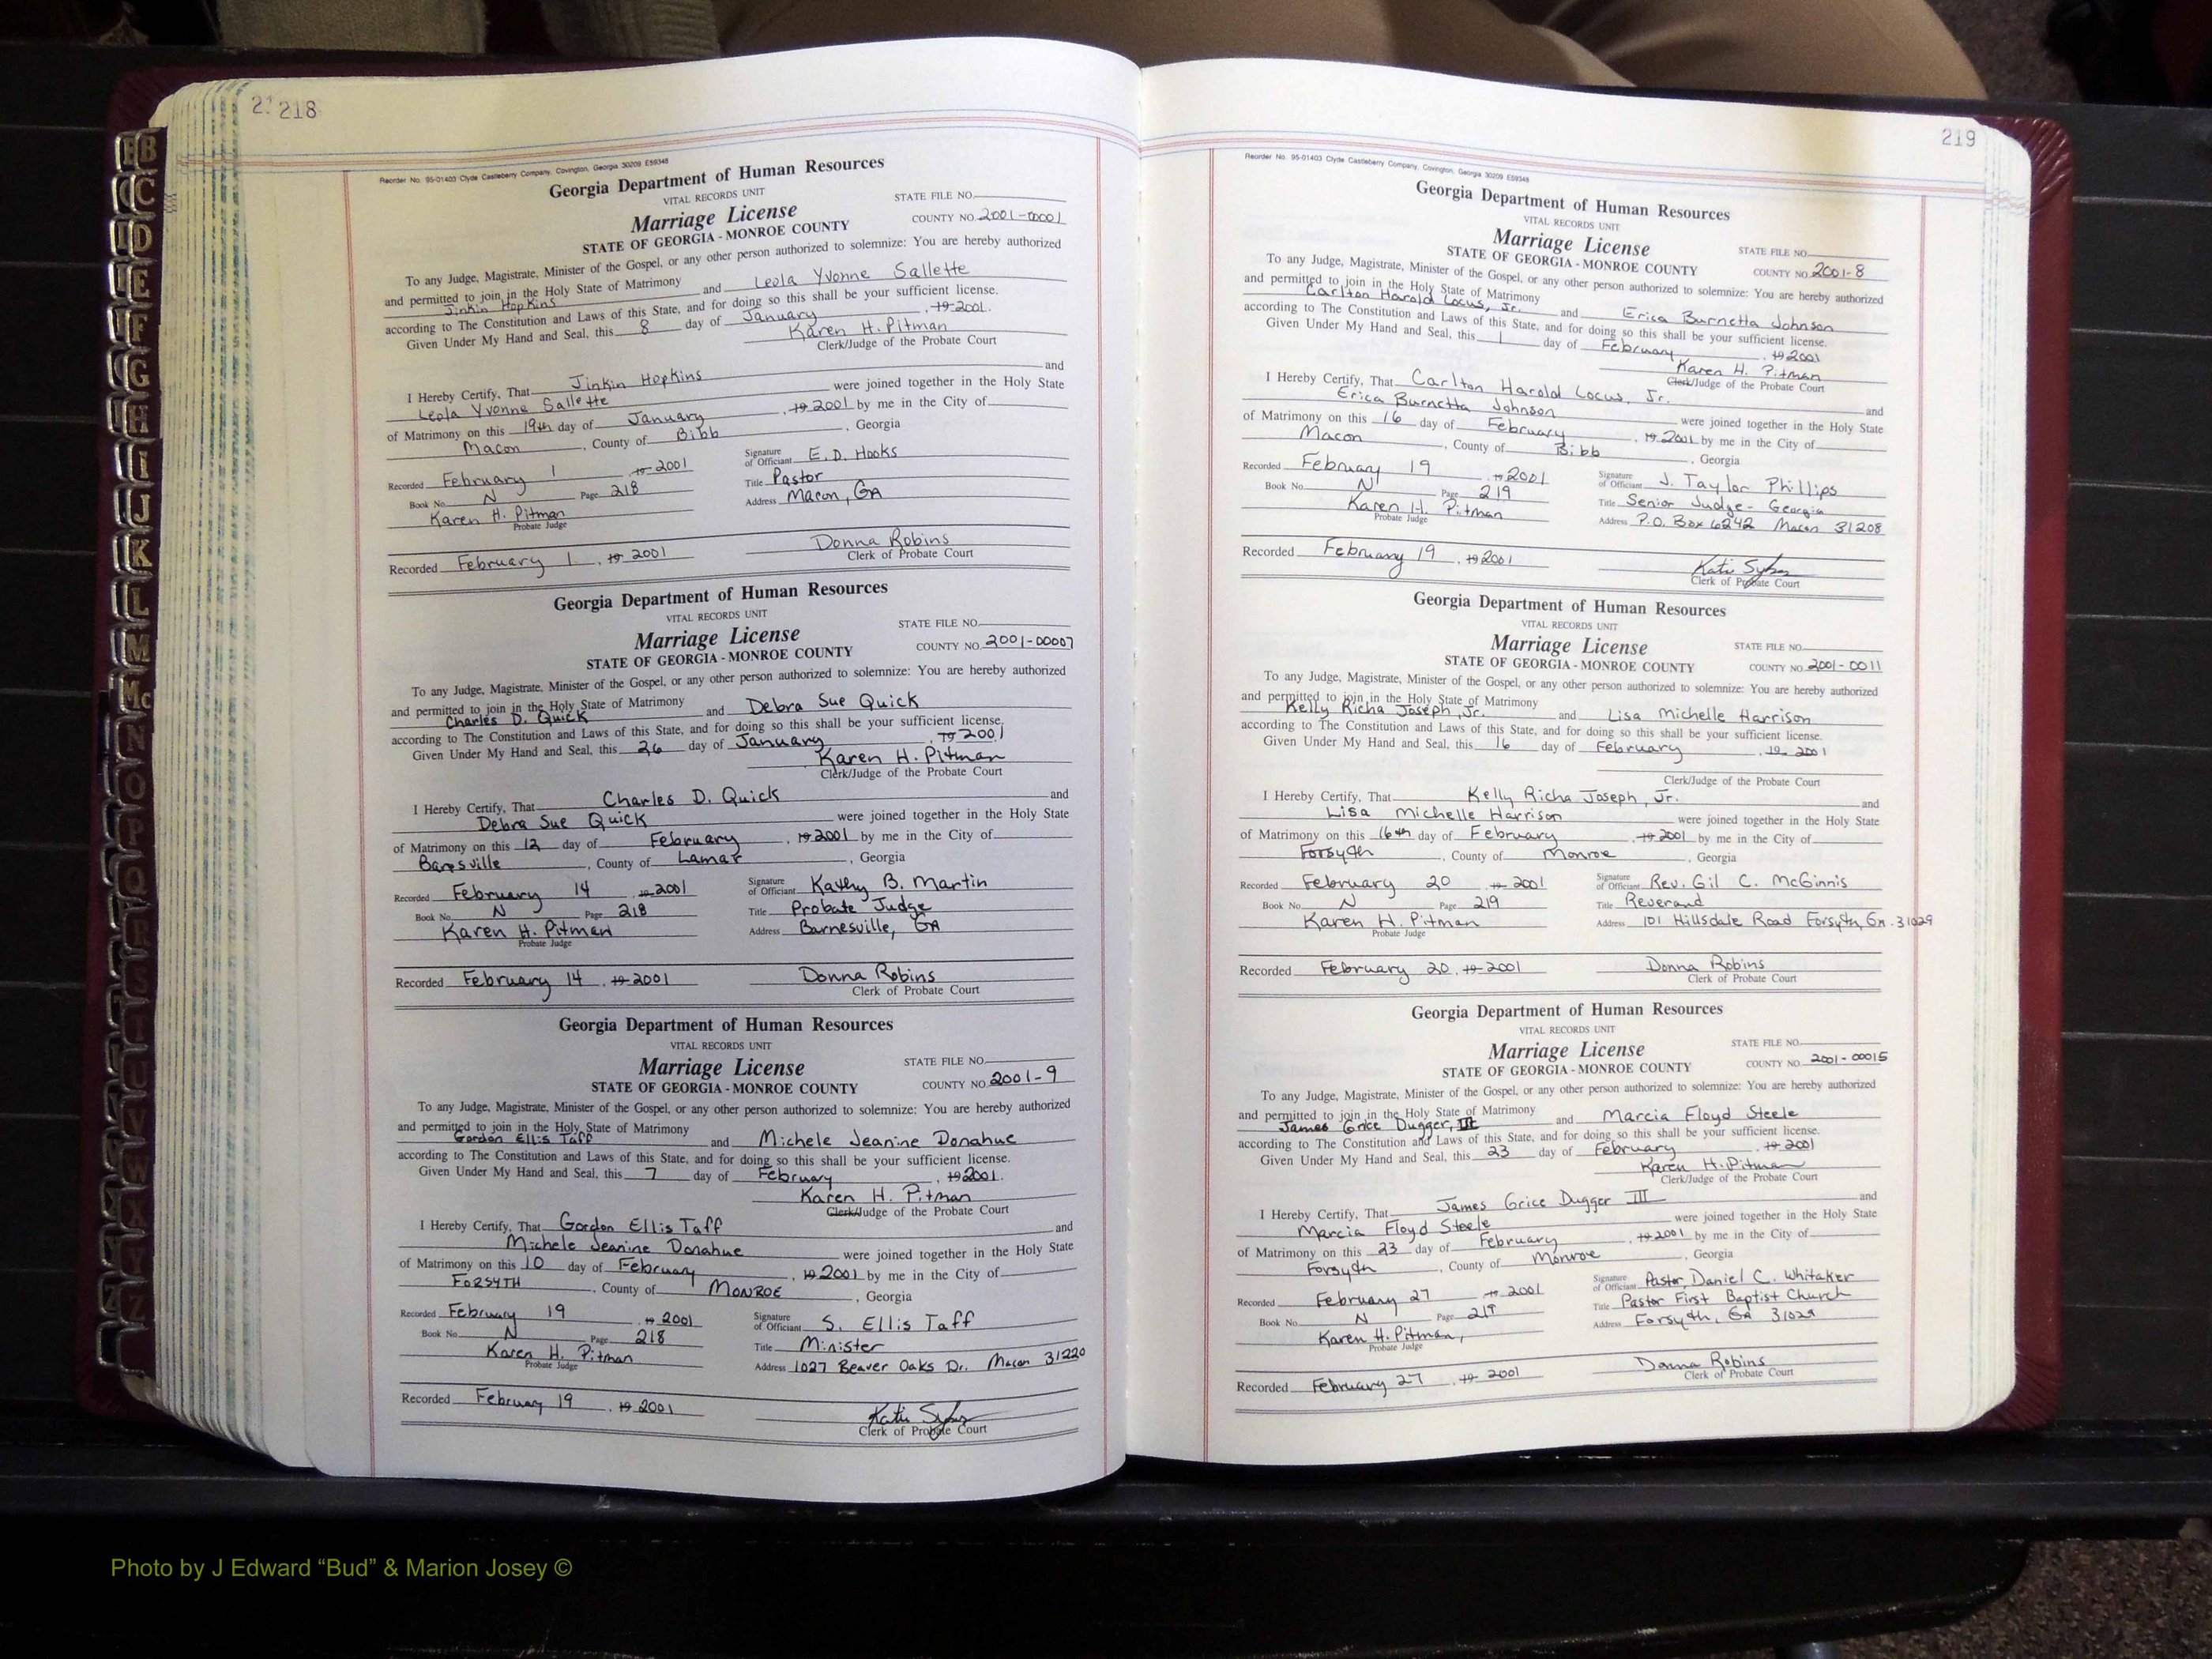 21 218
Reorder No. 95-01403 Clyde Castleberry Company, Covington, Georgia 30209 E59348
Georgia Department of Human Resources
VITAL RECORDS UNIT
STATE FILE NO.
Marriage License
COUNTY NO. 2001-00001
STATE OF GEORGIA - MONROE COUNTY
To any Judge, Magistrate, Minister of the Gospel, or any other person authorized to solemnize: You are hereby authorized
and permitted to join in the Holy State of Matrimony
Jinkin Hopkins and Leola Yvonne Sallette
according to The Constitution and Laws of this State, and for doing so this shall be your sufficient license.
Given Under My Hand and Seal, this 8 day of January, 19 2001.
Karen H. Pitman
Clerk/Judge of the Probate Court
I Hereby Certify, That Jinkin Hopkins and
Leola Yvonne Sallette were joined together in the Holy State
of Matrimony on this 19th day of January, 19 2001 by me in the City of
Macon, County of Bibb, Georgia
Recorded February 1, 19 2001
Signature of Officiant E. D. Hooks
Book No. N Page 218
Title Pastor
Karen H. Pitman
Address Macon, GA
Probate Judge
Recorded February 1, 19 2001
Donna Robins
Clerk of Probate Court
Georgia Department of Human Resources
VITAL RECORDS UNIT
STATE FILE NO.
Marriage License
COUNTY NO. 2001-00007
STATE OF GEORGIA - MONROE COUNTY
To any Judge, Magistrate, Minister of the Gospel, or any other person authorized to solemnize: You are hereby authorized
and permitted to join in the Holy State of Matrimony
Charles D. Quick and Debra Sue Quick
according to The Constitution and Laws of this State, and for doing so this shall be your sufficient license.
Given Under My Hand and Seal, this 26 day of January, 19 2001
Karen H. Pitman
Clerk/Judge of the Probate Court
I Hereby Certify, That Charles D. Quick and
Debra Sue Quick were joined together in the Holy State
of Matrimony on this 12 day of February, 19 2001 by me in the City of
Barnsville, County of Lamar, Georgia
Recorded February 14, 19 2001
Signature of Officiant Kathy B. Martin
Book No. N Page 218
Title Probate Judge
Karen H. Pitman
Address Barnesville, GA
Probate Judge
Recorded February 14, 19 2001
Donna Robins
Clerk of Probate Court
Georgia Department of Human Resources
VITAL RECORDS UNIT
STATE FILE NO.
Marriage License
COUNTY NO. 2001-9
STATE OF GEORGIA - MONROE COUNTY
To any Judge, Magistrate, Minister of the Gospel, or any other person authorized to solemnize: You are hereby authorized
and permitted to join in the Holy State of Matrimony
Gordon Ellis Taff and Michele Jeanine Donahue
according to The Constitution and Laws of this State, and for doing so this shall be your sufficient license.
Given Under My Hand and Seal, this 7 day of February, 19 2001.
Karen H. Pitman
Clerk/Judge of the Probate Court
I Hereby Certify, That Gordon Ellis Taff and
Michele Jeanine Donahue were joined together in the Holy State
of Matrimony on this 10 day of February, 19 2001 by me in the City of
FORSYTH, County of MONROE, Georgia
Recorded February 19, 19 2001
Signature of Officiant S. Ellis Taff
Book No. N Page 218
Title Minister
Karen H. Pitman
Address 1027 Beaver Oaks Dr. Macon 31220
Probate Judge
Recorded February 19, 19 2001
Clerk of Probate Court
219
Reorder No. 95-01403 Clyde Castleberry Company, Covington, Georgia 30209 E59348
Georgia Department of Human Resources
VITAL RECORDS UNIT
Marriage License
STATE FILE NO.
STATE OF GEORGIA - MONROE COUNTY
COUNTY NO. 2001-8
To any Judge, Magistrate, Minister of the Gospel, or any other person authorized to solemnize: You are hereby authorized
and permitted to join in the Holy State of Matrimony
Carlton Harold Locus, Jr. and Erica Burnetta Johnson
according to The Constitution and Laws of this State, and for doing so this shall be your sufficient license.
Given Under My Hand and Seal, this 1 day of February, 19 2001
Karen H. Pitman
Clerk/Judge of the Probate Court
I Hereby Certify, That Carlton Harold Locus, Jr. and
Erica Burnetta Johnson were joined together in the Holy State
of Matrimony on this 16 day of February, 19 2001 by me in the City of
Macon, County of Bibb, Georgia
Recorded February 19, 19 2001
Signature of Officiant J. Taylor Phillips
Book No. N Page 219
Title Senior Judge - Georgia
Karen H. Pitman
Address P.O. Box 6242 Macon 31208
Probate Judge
Recorded February 19, 19 2001
Clerk of Probate Court
Georgia Department of Human Resources
VITAL RECORDS UNIT
Marriage License
STATE FILE NO.
STATE OF GEORGIA - MONROE COUNTY
COUNTY NO. 2001-0011
To any Judge, Magistrate, Minister of the Gospel, or any other person authorized to solemnize: You are hereby authorized
and permitted to join in the Holy State of Matrimony
Kelly Richa Joseph, Jr. and Lisa Michelle Harrison
according to The Constitution and Laws of this State, and for doing so this shall be your sufficient license.
Given Under My Hand and Seal, this 16 day of February, 19 2001
Clerk/Judge of the Probate Court
I Hereby Certify, That Kelly Richa Joseph, Jr. and
Lisa Michelle Harrison were joined together in the Holy State
of Matrimony on this 16th day of February, 19 2001 by me in the City of
Forsyth, County of Monroe, Georgia
Recorded February 20, 19 2001
Signature of Officiant Rev. Gil C. McGinnis
Book No. N Page 219
Title Reverand
Karen H. Pitman
Address 101 Hillsdale Road Forsyth, Ga. 31029
Probate Judge
Recorded February 20, 19 2001
Donna Robins
Clerk of Probate Court
Georgia Department of Human Resources
VITAL RECORDS UNIT
Marriage License
STATE FILE NO.
STATE OF GEORGIA - MONROE COUNTY
COUNTY NO. 2001-00015
To any Judge, Magistrate, Minister of the Gospel, or any other person authorized to solemnize: You are hereby authorized
and permitted to join in the Holy State of Matrimony
James Grice Dugger, III and Marcia Floyd Steele
according to The Constitution and Laws of this State, and for doing so this shall be your sufficient license.
Given Under My Hand and Seal, this 23 day of February, 19 2001
Karen H. Pitman
Clerk/Judge of the Probate Court
I Hereby Certify, That James Grice Dugger III and
Marcia Floyd Steele were joined together in the Holy State
of Matrimony on this 23 day of February, 19 2001 by me in the City of
Forsyth, County of Monroe, Georgia
Recorded February 27, 19 2001
Signature of Officiant Pastor, Daniel C. Whitaker
Book No. N Page 219
Title Pastor First Baptist Church
Karen H. Pitman,
Address Forsyth, GA 31029
Probate Judge
Recorded February 27, 19 2001
Donna Robins
Clerk of Probate Court
B
C
D
E
F
G
H
I
J
K
L
M
Mc
N
O
P
Q
R
S
T
U
V
W
X
Y
Z
Photo by J Edward “Bud” & Marion Josey ©